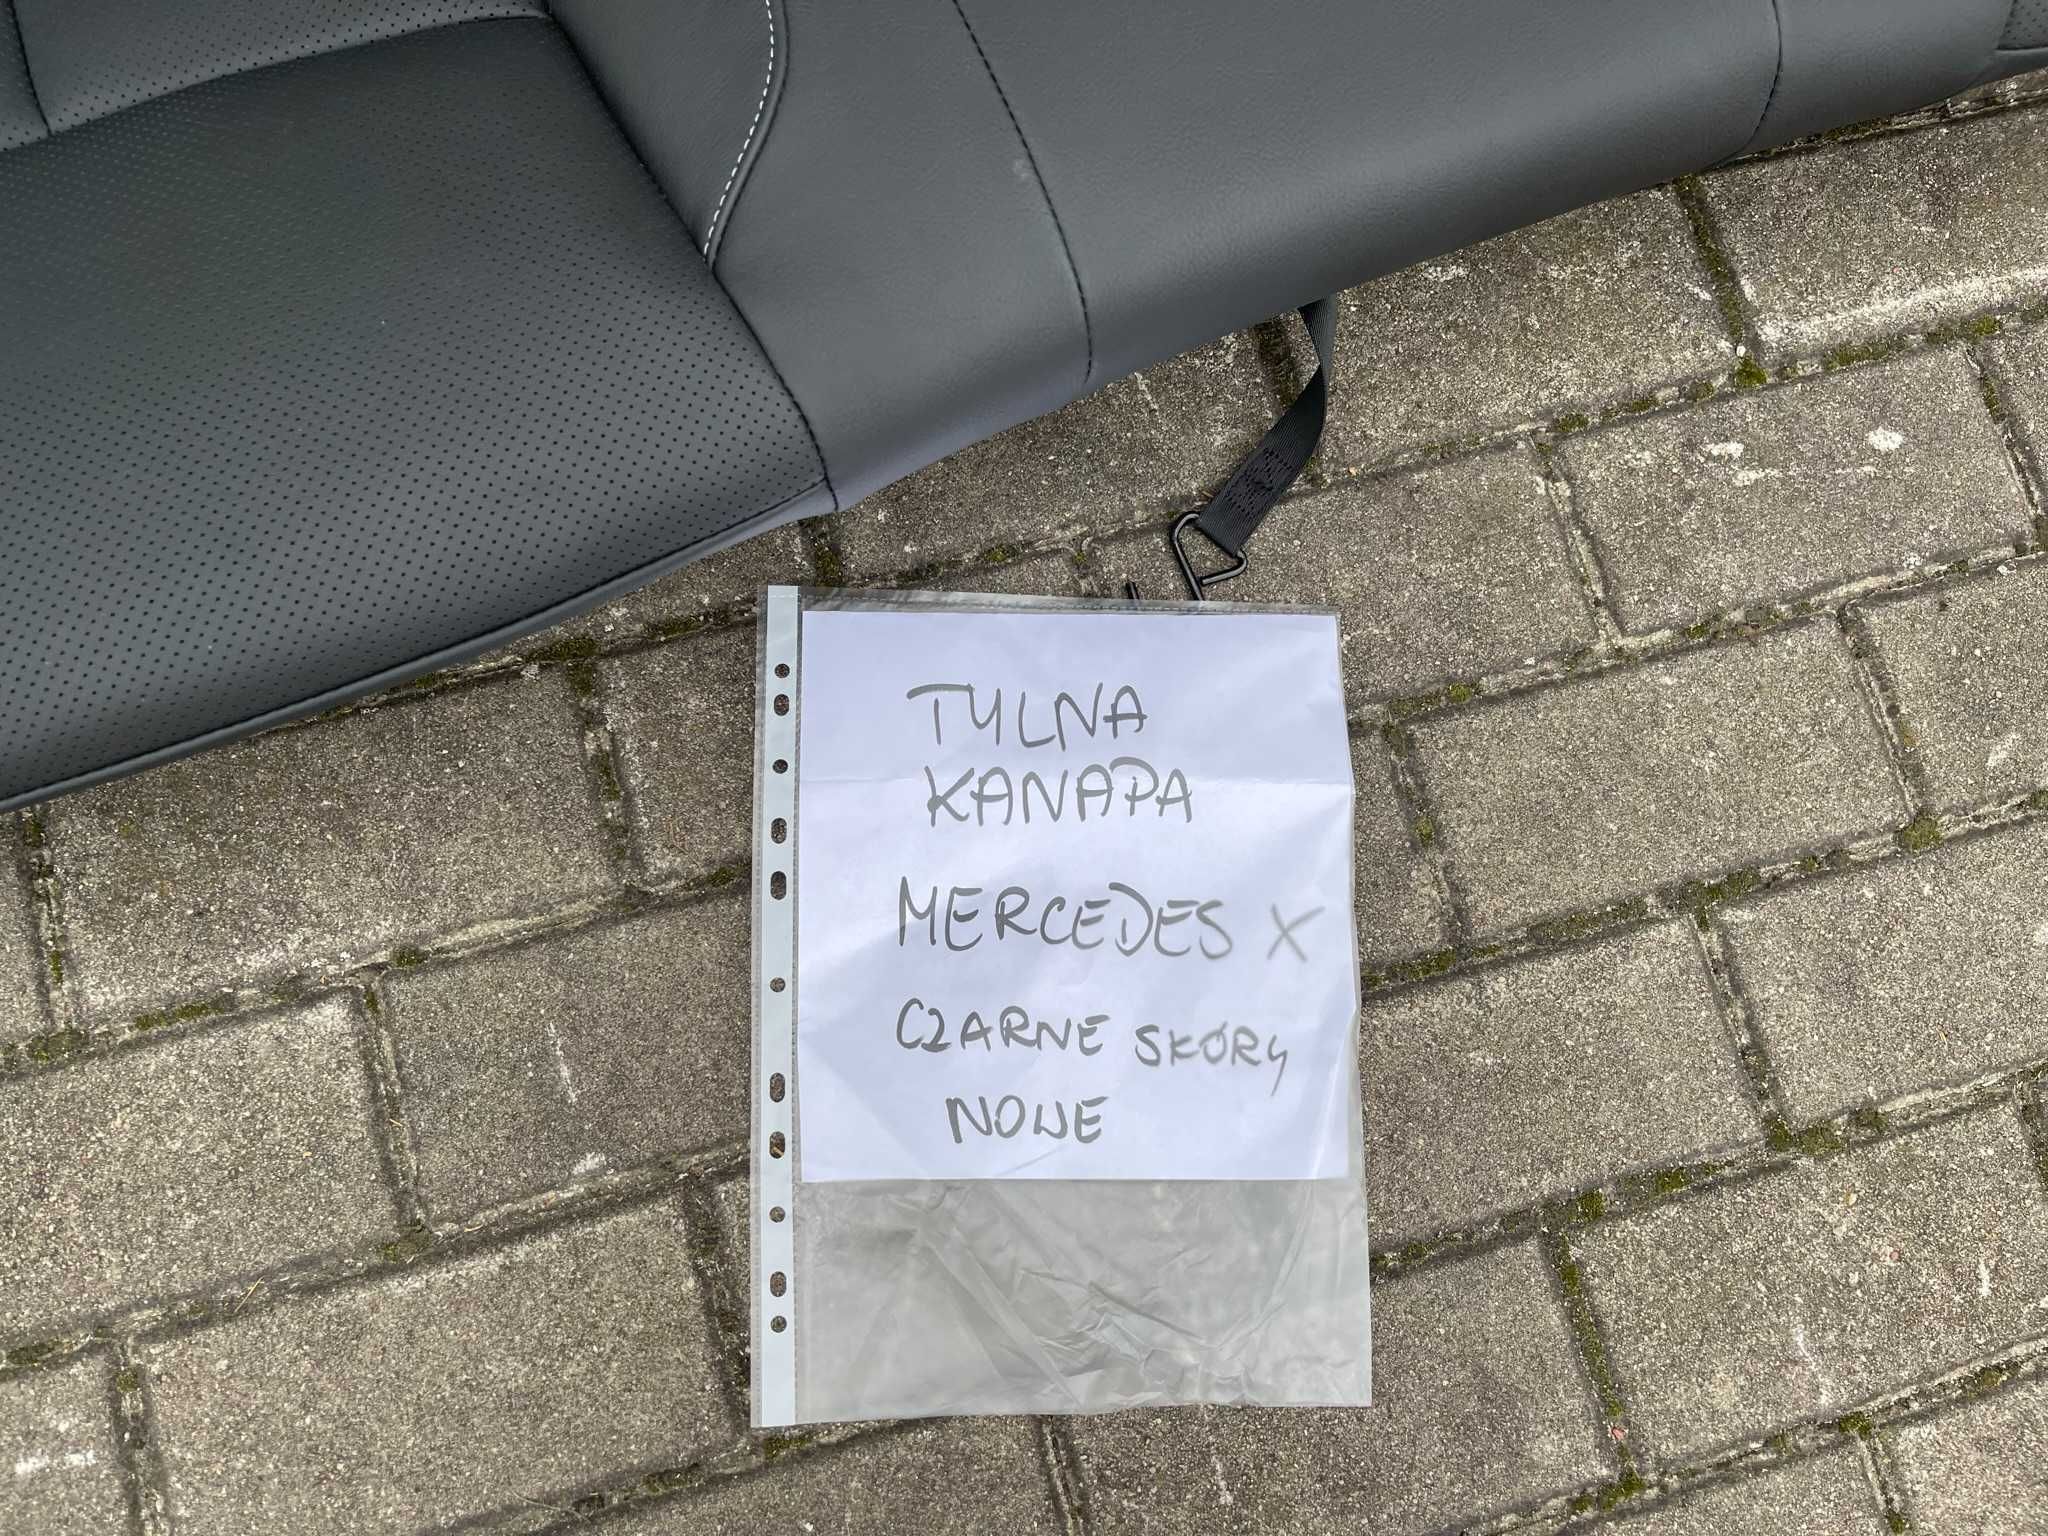 TYLNA
KANAPA
MERCEDES X
CZARNE SKÓRY
NOWE